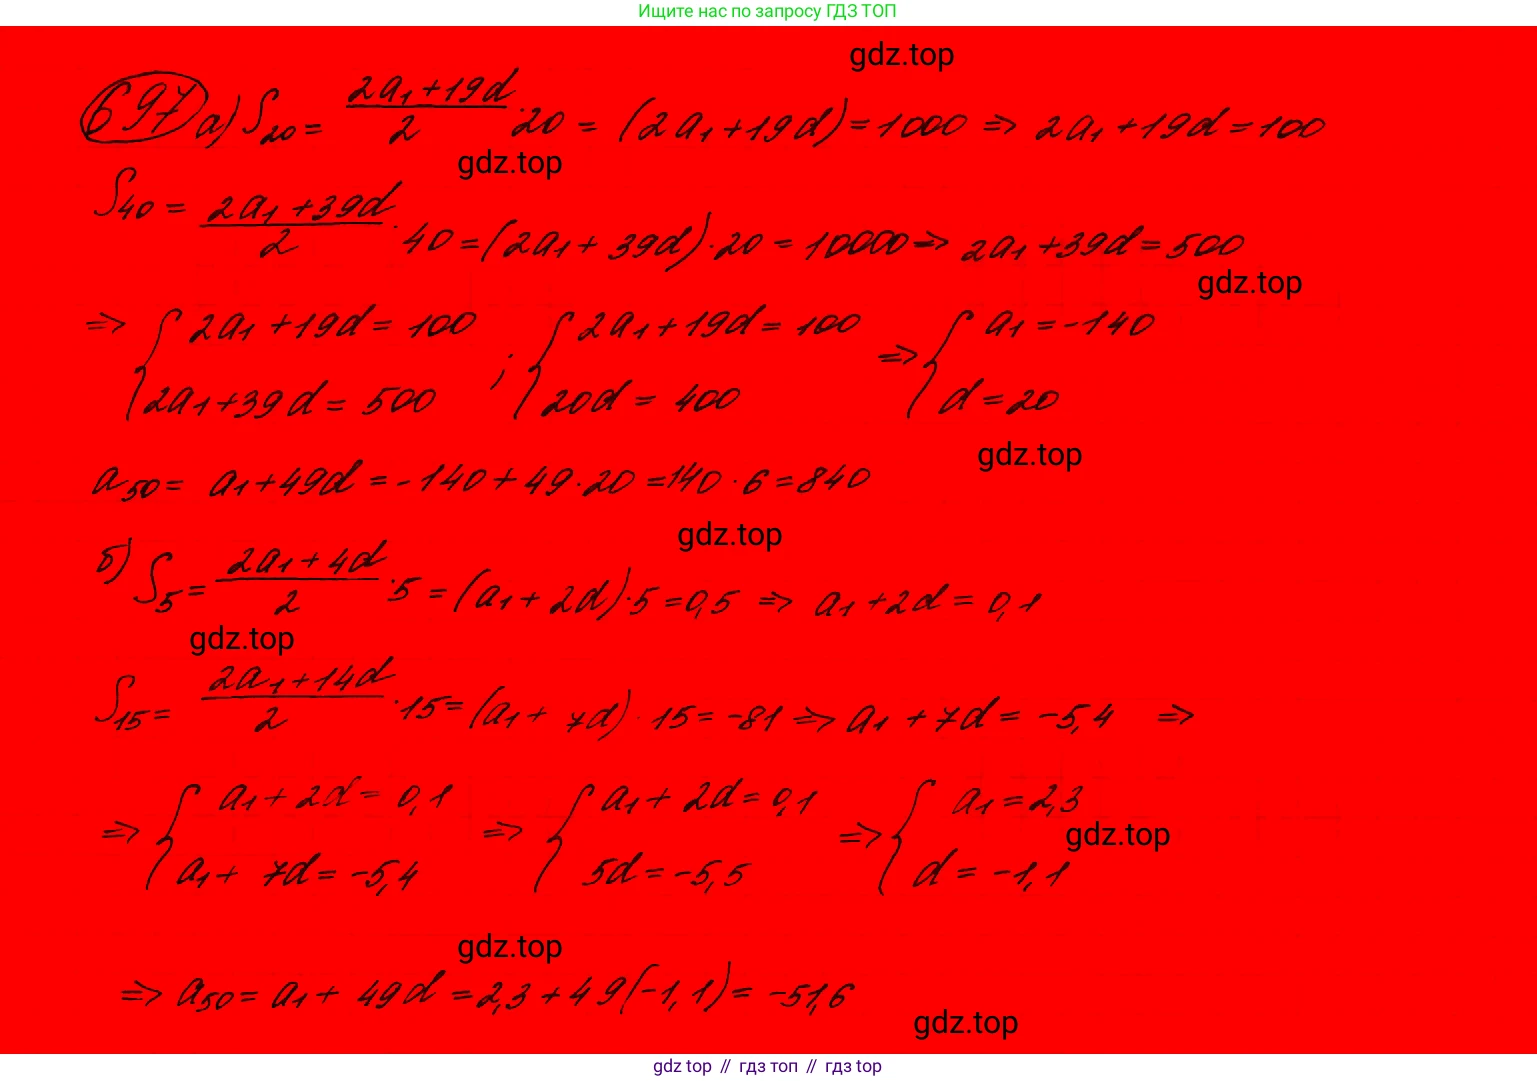 Ищите нас по запросу ГДЗ ТОП
gdz.top
697 а) S₂₀ = (2a₁+19d)/2 · 20 = (2a₁+19d) = 1000 ⇒ 2a₁+19d = 100
gdz.top
S₄₀ = (2a₁+39d)/2 · 40 = (2a₁+39d)·20 = 10000 ⇒ 2a₁+39d = 500
gdz.top
⇒ { 2a₁+19d = 100 ; { 2a₁+19d = 100 ⇒ { a₁ = -140
2a₁+39d = 500 20d = 400 d = 20
gdz.top
a₅₀ = a₁+49d = -140+49·20 = 140·6 = 840
gdz.top
б) S₅ = (2a₁+4d)/2 · 5 = (a₁+2d)·5 = 0,5 ⇒ a₁+2d = 0,1
gdz.top
S₁₅ = (2a₁+14d)/2 · 15 = (a₁+7d)·15 = -81 ⇒ a₁+7d = -5,4 ⇒
⇒ { a₁+2d = 0,1 ⇒ { a₁+2d = 0,1 ⇒ { a₁ = 2,3
gdz.top
a₁+7d = -5,4 5d = -5,5 d = -1,1
gdz.top
⇒ a₅₀ = a₁+49d = 2,3+49(-1,1) = -51,6
gdz.top
gdz top // гдз топ // gdz top